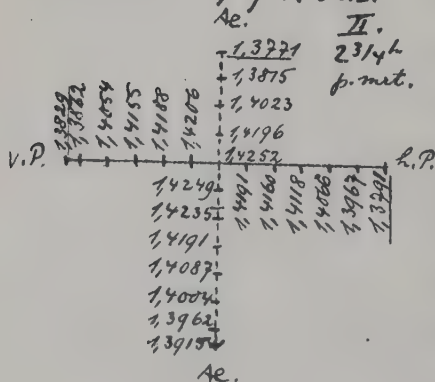 Ae.
II.
2 3/4 h
p. mrt.
1,3771
1,3815
1,4023
1,4196
1,4252
v.P.
1,3829
1,3862
1,4054
1,4155
1,4188
1,4206
h.P.
1,4191
1,4160
1,4118
1,4066
1,3967
1,3791
1,4249
1,4235
1,4191
1,4087
1,4004
1,3962
1,3915
Ae.